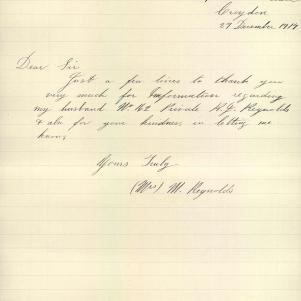 Croydon
27 December 1917
Dear Sir
Just a few lines to thank you
very much for Information regarding
my husband No 162 Private H.J. Reynolds
& also for your kindness in letting me
know,
Yours Truly
(Mrs) M. Reynolds